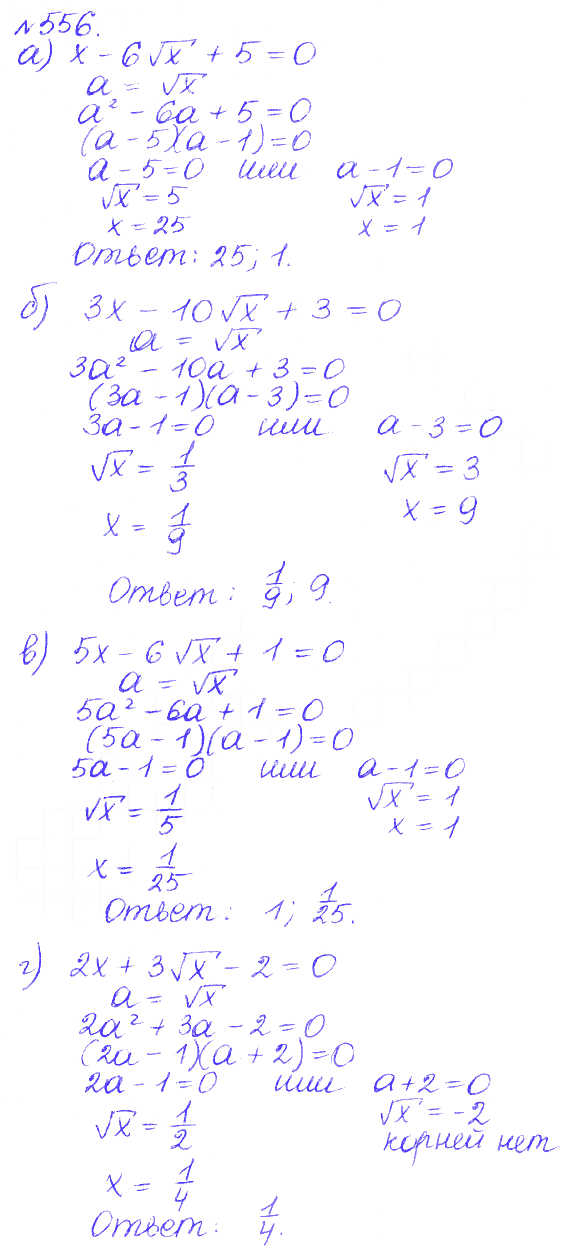 №556.
а) x - 6√x + 5 = 0
a = √x
a² - 6a + 5 = 0
(a - 5)(a - 1) = 0
a - 5 = 0 или a - 1 = 0
√x = 5 √x = 1
x = 25 x = 1
Ответ: 25; 1.
б) 3x - 10√x + 3 = 0
a = √x
3a² - 10a + 3 = 0
(3a - 1)(a - 3) = 0
3a - 1 = 0 или a - 3 = 0
√x = 1/3 √x = 3
x = 1/9 x = 9
Ответ: 1/9; 9.
в) 5x - 6√x + 1 = 0
a = √x
5a² - 6a + 1 = 0
(5a - 1)(a - 1) = 0
5a - 1 = 0 или a - 1 = 0
√x = 1/5 √x = 1
x = 1/25 x = 1
Ответ: 1; 1/25.
г) 2x + 3√x - 2 = 0
a = √x
2a² + 3a - 2 = 0
(2a - 1)(a + 2) = 0
2a - 1 = 0 или a + 2 = 0
√x = 1/2 √x = -2
x = 1/4 корней нет
Ответ: 1/4.